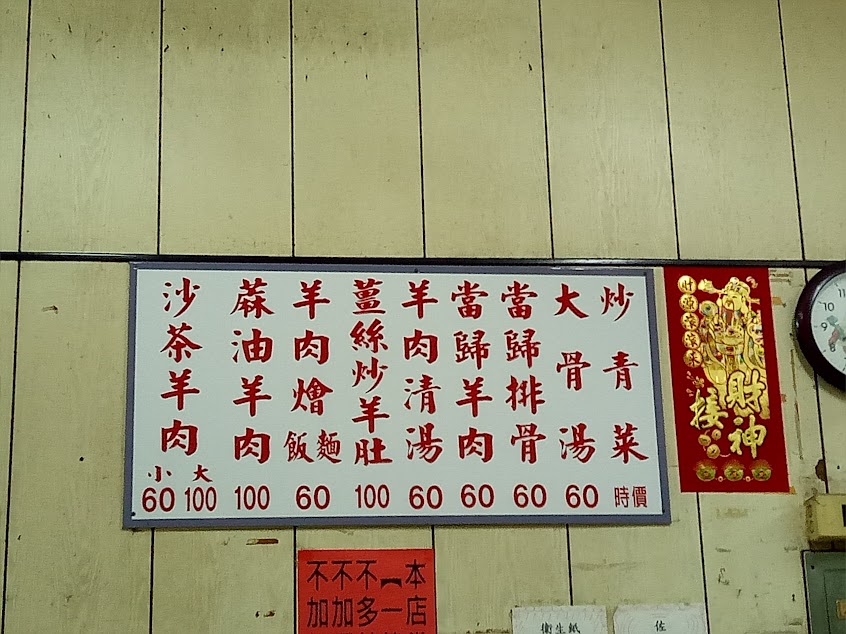 炒青菜 時價
大骨湯 60
當歸排骨 60
當歸羊肉 60
羊肉清湯 60
薑絲炒羊肚 100
羊肉燴麵飯 60
蔴油羊肉 100
沙茶羊肉 大 100 小 60
接財神
本店
不多
不加
不加
衛生紙
佐
10
9
8